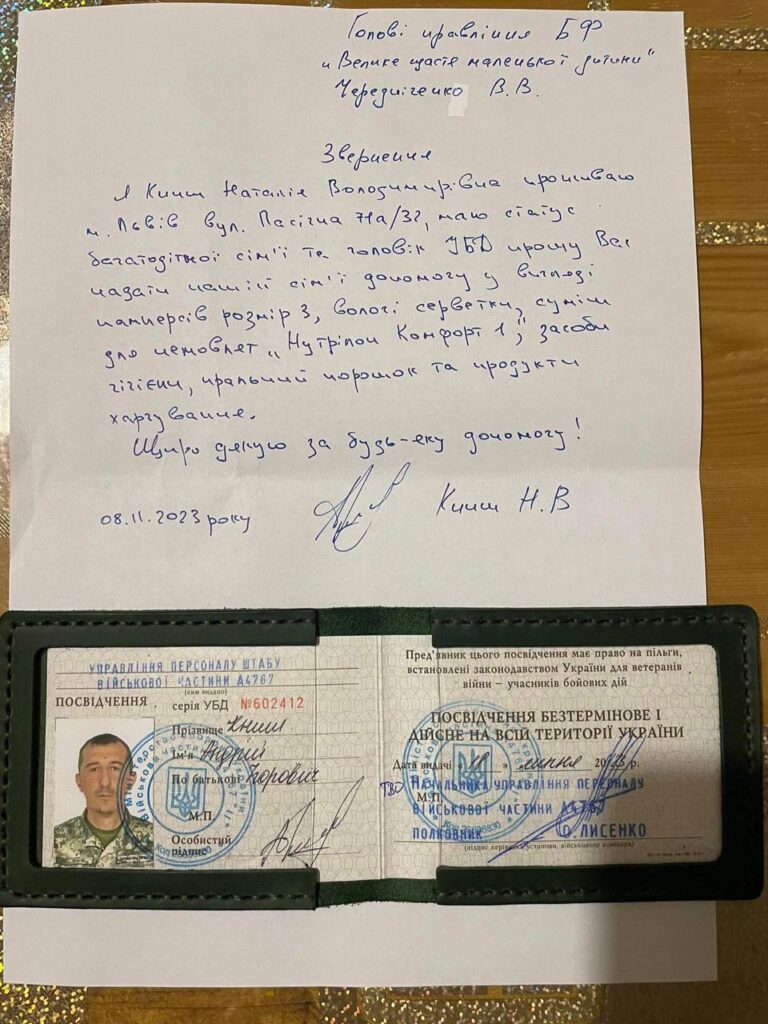 Голові правління БФ
„Велике щастя маленької дитини"
Чередніченко В.В.
Звернення
Я Книш Наталія Володимирівна проживаю
м. Львів вул. Пасічна 71а/32, маю статус
багатодітної сім'ї та чоловік УБД прошу Вас
надати нашій сім'ї допомогу у вигляді
памперсів розмір 3, вологі серветки, суміш
для немовлят „Нутрілон Комфорт 1", засоби
гігієни, пральний порошок та продукти
харчування.
Щиро дякую за будь-яку допомогу!
08.11.2023 року
Книш Н.В
УПРАВЛІННЯ ПЕРСОНАЛУ ШТАБУ
ВІЙСЬКОВОЇ ЧАСТИНИ А4767
(ким видано)
ПОСВІДЧЕННЯ серія УБД №602412
Прізвище Книш
Ім'я Андрій
По батькові Ігорович
М.П.
Особистий
підпис
Пред'явник цього посвідчення має право на пільги,
встановлені законодавством України для ветеранів
війни – учасників бойових дій
ПОСВІДЧЕННЯ БЕЗТЕРМІНОВЕ І
ДІЙСНЕ НА ВСІЙ ТЕРИТОРІЇ УКРАЇНИ
Дата видачі « 18 » липня 2023 р.
ТВО Начальника управління персоналу
М.П.
ВІЙСЬКОВОЇ ЧАСТИНИ А4767
ПОЛКОВНИК О.ЛИСЕНКО
(підпис керівника установи, військового комісара)